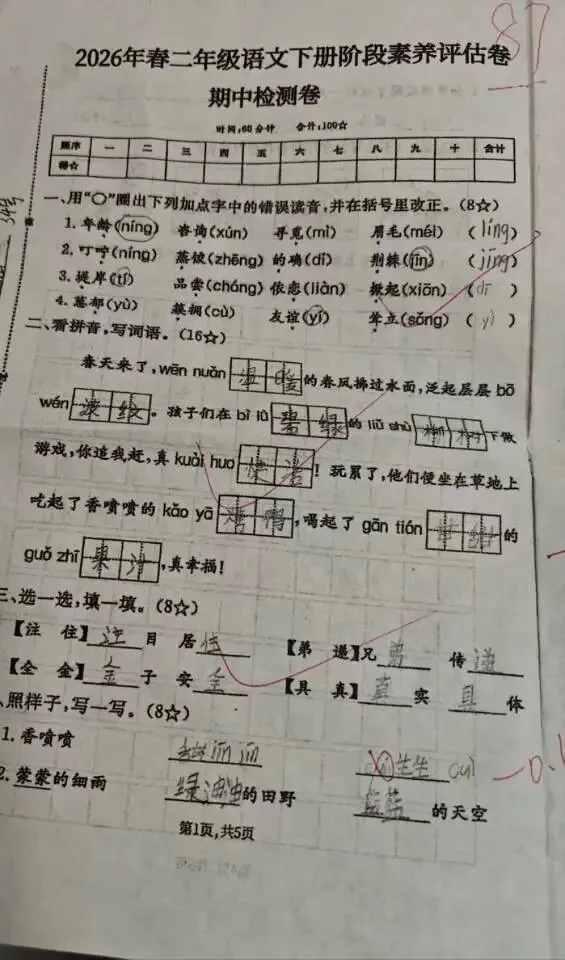 87
2026年春二年级语文下册阶段素养评估卷
期中检测卷
时间:60分钟 合计:100☆
题序 一 二 三 四 五 六 七 八 九 十 合计
得☆
一、用“○”圈出下列加点字中的错误读音,并在括号里改正。(8☆)
1. 年龄(níng) 咨询(xún) 寻觅(mì) 眉毛(méi) (líng)
2. 叮咛(níng) 蒸饺(zhēng) 的确(dí) 荆棘(jīn) (jīng)
3. 堤岸(tí) 品尝(cháng) 依恋(liàn) 掀起(xiān) (dī)
4. 葱郁(yù) 簇拥(cù) 友谊(yí) 耸立(sǒng) (yì)
二、看拼音,写词语。(16☆)
春天来了,wēn nuǎn 温暖 的春风拂过水面,泛起层层 bō
wén 波纹。孩子们在 bì lǜ 碧绿 的 liǔ shù 柳树 下做
游戏,你追我赶,真 kuài huo 快活!玩累了,他们便坐在草地上
吃起了香喷喷的 kǎo yā 烤鸭,喝起了 gān tián 甘甜 的
guǒ zhī 果汁,真幸福!
三、选一选,填一填。(8☆)
【注 住】注目 居住 【弟 递】兄弟 传递
【全 金】金子 安全 【具 真】真实 具体
、照样子,写一写。(8☆)
1. 香喷喷 生生 cuì
2. 蒙蒙的细雨 绿油油的田野 蓝蓝的天空
第1页,共5页